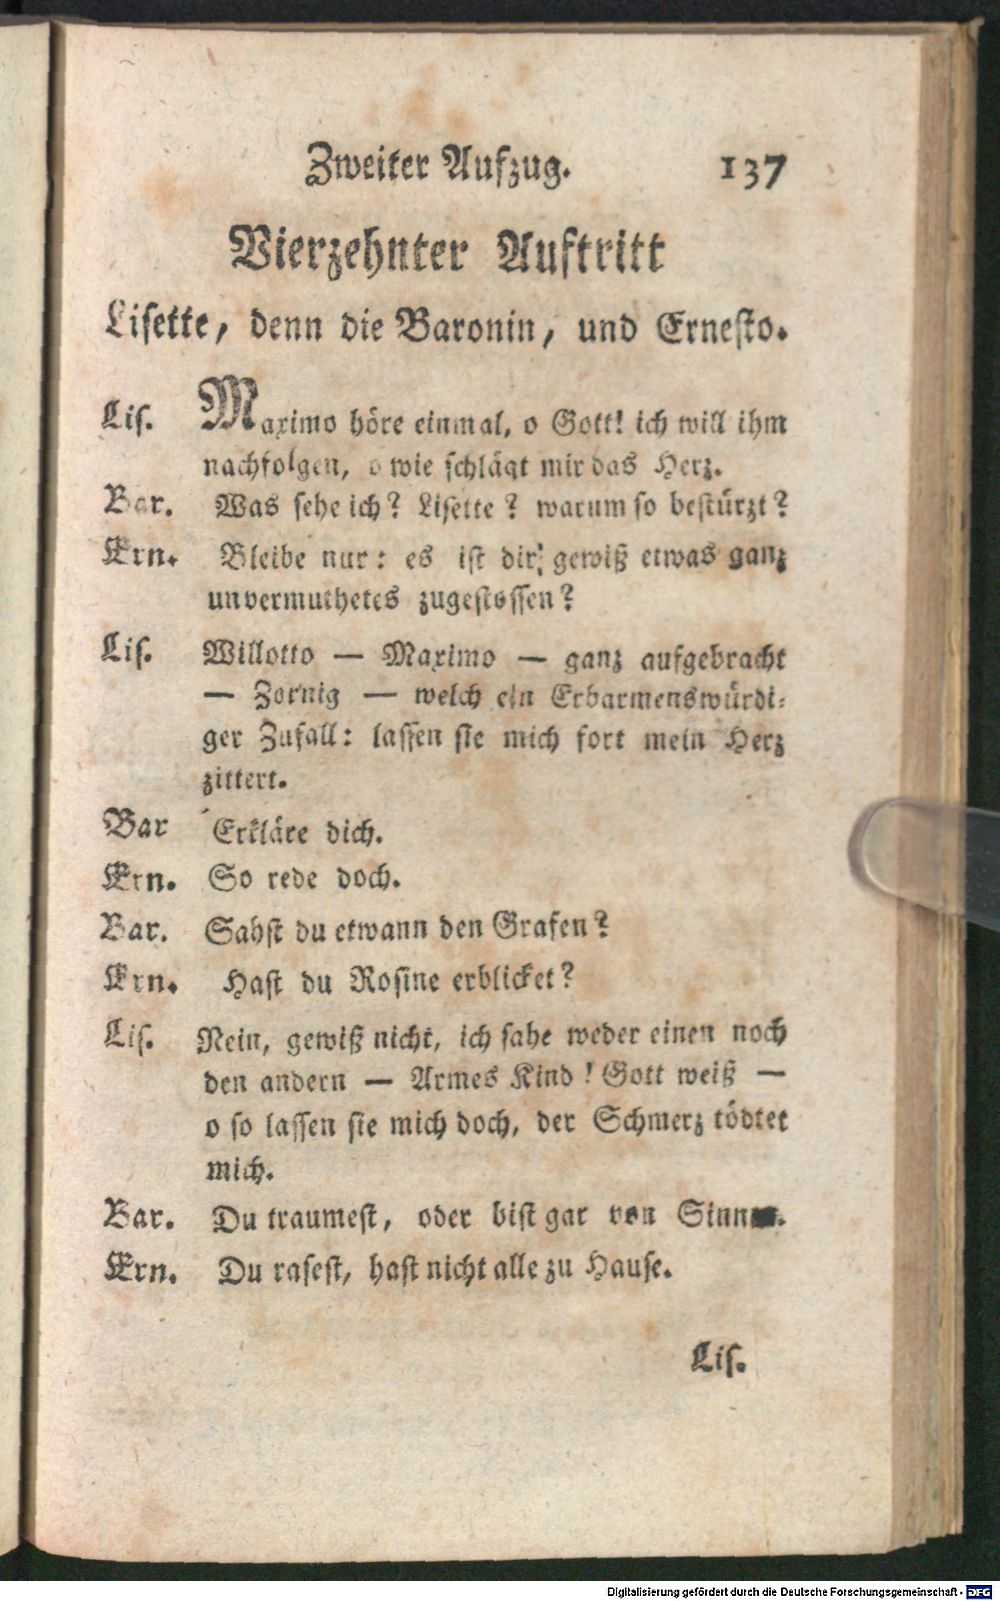 Zweiter Aufzug. 137
Vierzehnter Auftritt
Lisette, denn die Baronin, und Ernesto.
Lis. Maximo höre einmal, o Gott! ich will ihm
nachfolgen, o wie schlägt mir das Herz.
Bar. Was sehe ich? Lisette? warum so bestürzt?
Ern. Bleibe nur: es ist dir, gewiß etwas ganz
unvermuthetes zugestossen?
Lis. Willotto — Maximo — ganz aufgebracht
— Zornig — welch ein Erbarmenswürdi-
ger Zufall: lassen sie mich fort mein Herz
zittert.
Bar Erkläre dich.
Ern. So rede doch.
Bar. Sahst du etwann den Grafen?
Ern. Hast du Rosine erblicket?
Lis. Nein, gewiß nicht, ich sahe weder einen noch
den andern — Armes Kind! Gott weiß —
o so lassen sie mich doch, der Schmerz tödtet
mich.
Bar. Du traumest, oder bist gar von
Ern. Du rasest, hast nicht alle zu Hause.
Lis.
Digitalisierung gefördert durch die Deutsche Forschungsgemeinschaft - DFG